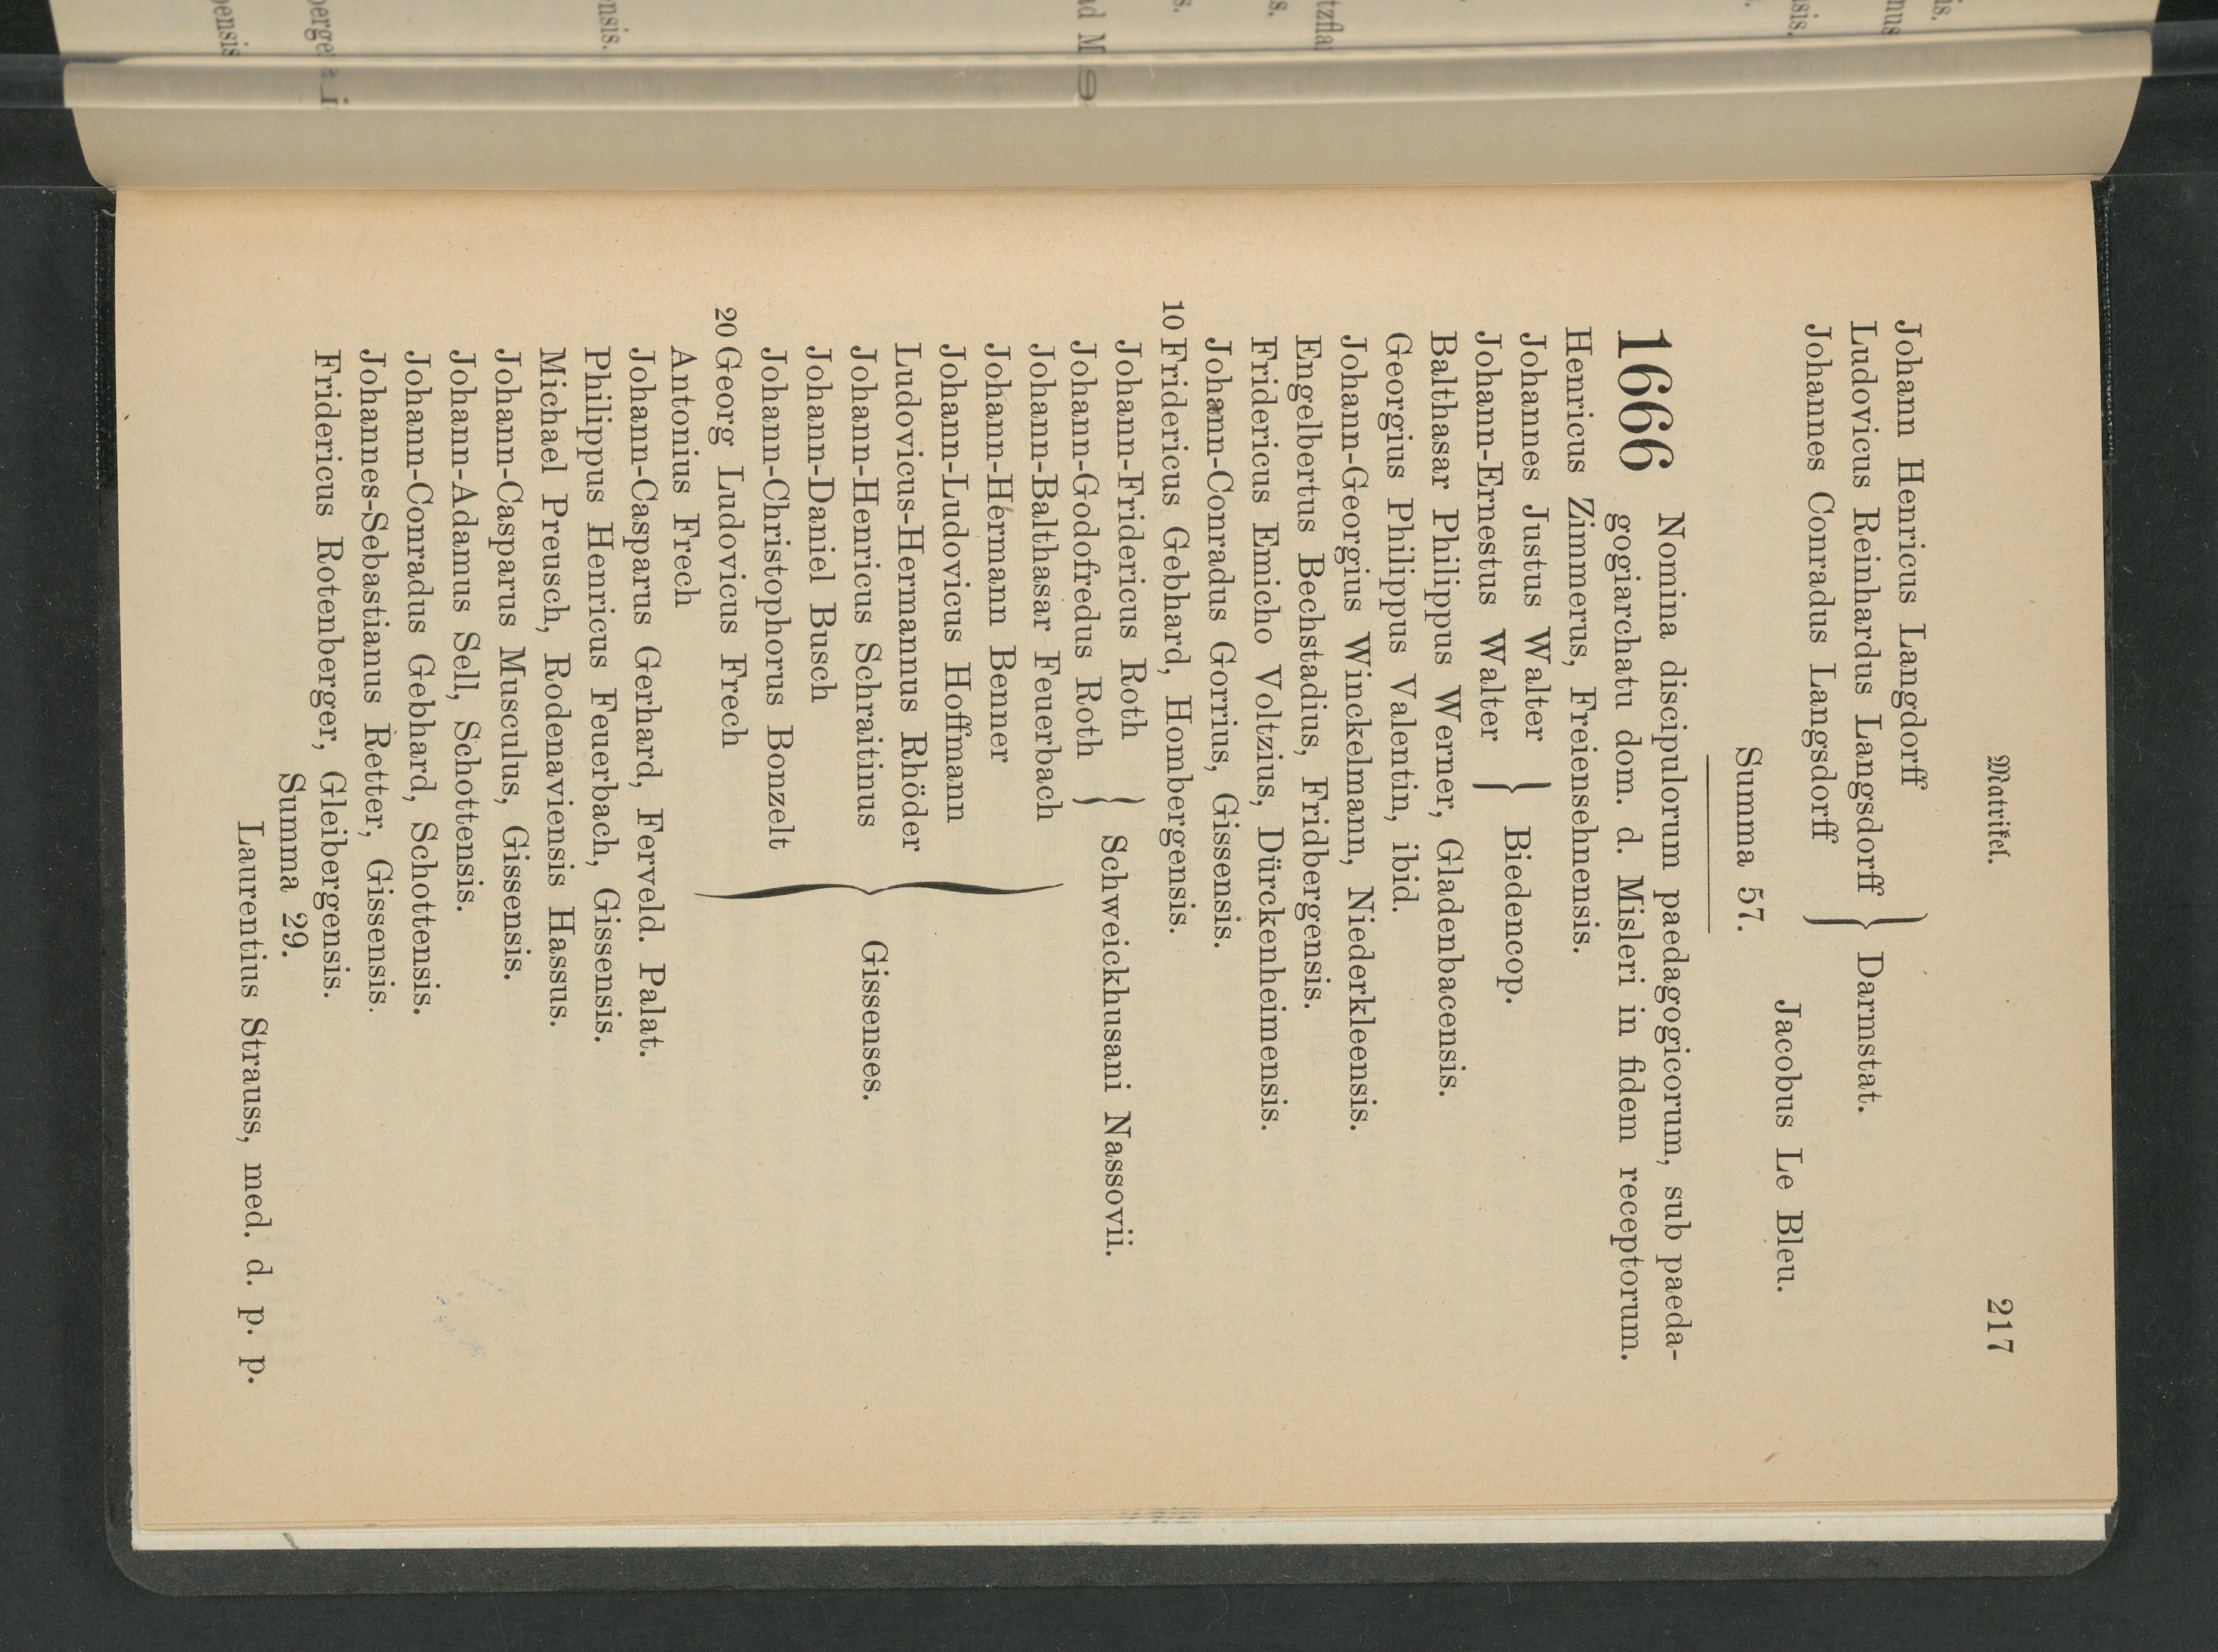 Matrikel. 217
Johann Henricus Langdorff
Ludovicus Reinhardus Langsdorff } Darmstat.
Johannes Conradus Langsdorff
Jacobus Le Bleu.
Summa 57.
1666 Nomina discipulorum paedagogicorum, sub paeda-
gogiarchatu dom. d. Misleri in fidem receptorum.
Henricus Zimmerus, Freiensehnensis.
Johannes Justus Walter } Biedencop.
Johann-Ernestus Walter
Balthasar Philippus Werner, Gladenbacensis.
Georgius Philippus Valentin, ibid.
Johann-Georgius Winckelmann, Niederkleensis.
Engelbertus Bechstadius, Fridbergensis.
Fridericus Emicho Voltzius, Dürckenheimensis.
Johann-Conradus Gorrius, Gissensis.
10 Fridericus Gebhard, Hombergensis.
Johann-Fridericus Roth } Schweickhusani Nassovii.
Johann-Godofredus Roth
Johann-Balthasar Feuerbach
Johann-Hermann Benner
Johann-Ludovicus Hoffmann
Ludovicus-Hermannus Rhöder
Johann-Henricus Schraitinus } Gissenses.
Johann-Daniel Busch
Johann-Christophorus Bonzelt
20 Georg Ludovicus Frech
Antonius Frech
Johann-Casparus Gerhard, Ferveld. Palat.
Philippus Henricus Feuerbach, Gissensis.
Michael Preusch, Rodenaviensis Hassus.
Johann-Casparus Musculus, Gissensis.
Johann-Adamus Sell, Schottensis.
Johann-Conradus Gebhard, Schottensis.
Johannes-Sebastianus Retter, Gissensis.
Fridericus Rotenberger, Gleibergensis.
Summa 29.
Laurentius Strauss, med. d. p. p.